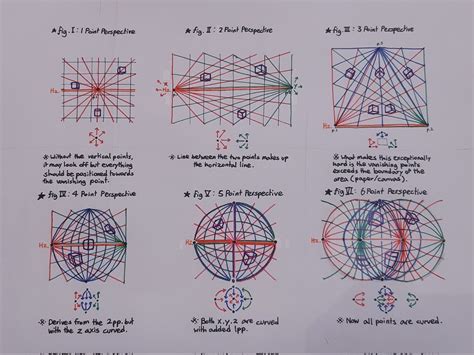 ★ fig. I : 1 Point Perspective
★ fig. II : 2 Point Perspective
★ fig. III : 3 Point Perspective
Hz.
Hz.
※ Without the vertical points,
it may look off but everything
should be positioned towards
the vanishing point.
※ Line between the two points makes up
the horizontal line.
※ What makes this exceptionally
hard is the vanishing points
exceeds the boundary of the
area (paper/canvas).
★ fig IV : 4 Point Perspective
★ fig V : 5 Point Perspective
★ fig VI : 6 Point Perspective
Hz.
Hz.
Hz.
※ Derives from the 2pp. but
with the z axis curved.
※ Both x,y,z are curved
with added 1pp.
※ Now all points are curved.